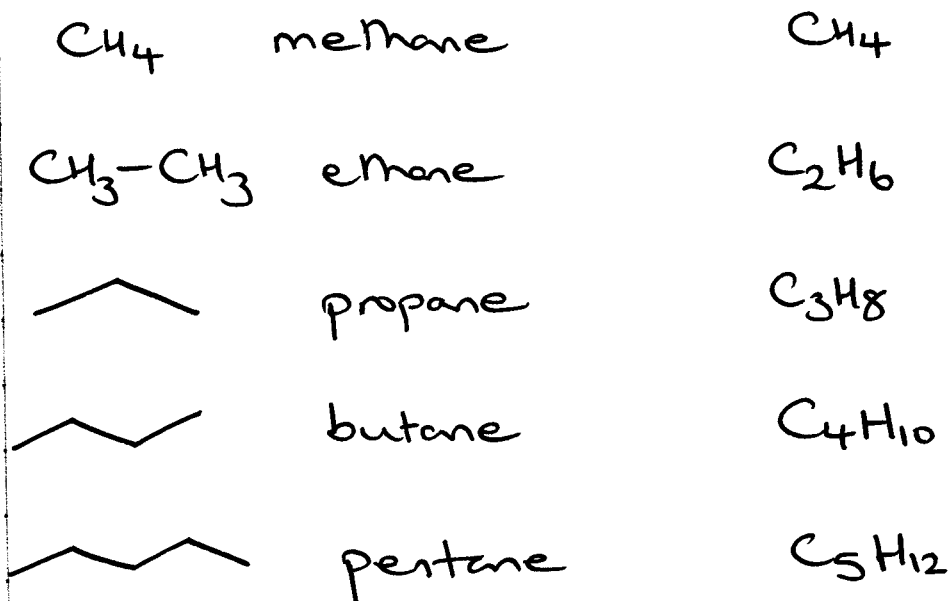 CH4 methane CH4
CH3-CH3 ethane C2H6
propane C3H8
butane C4H10
pentane C5H12